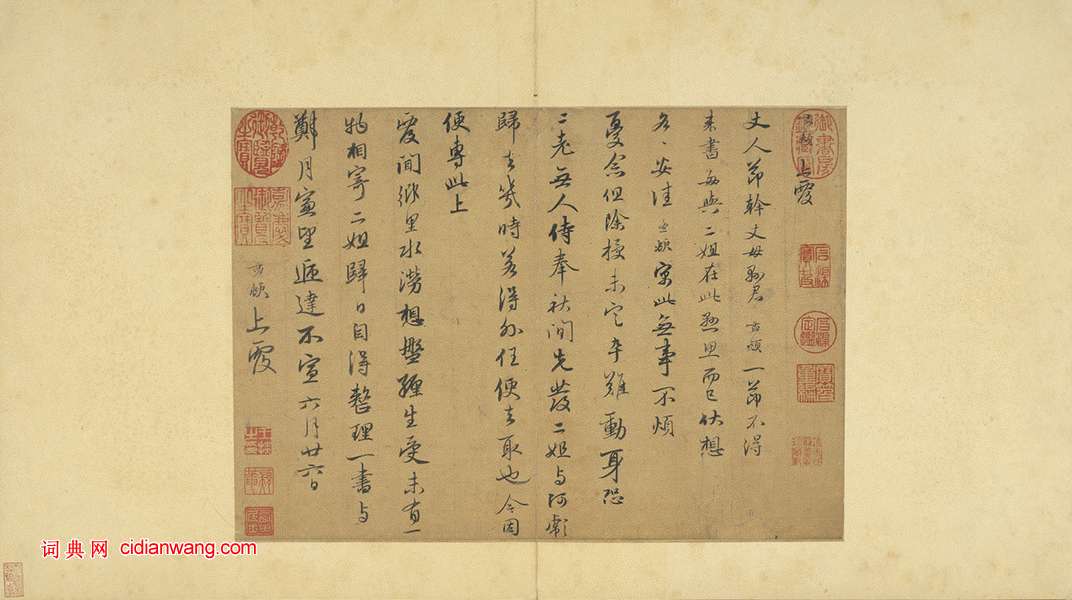 孟頫上覆
丈人節幹丈母縣君孟頫一節不得
来書每與二姐在此懸思而已伏想
各〻安佳孟頫寓此無事不煩
憂念但除授未定卒難動身恐
二老無人侍奉秋間先發二姐与阿彪
歸去幾時若得外任便去取也今因一
便專此上
覆聞鄉里水澇想盤纏生受未有一
物相寄二姐歸日自得整理一書与
鄭月窗望遞達不宣六月廿六日
孟頫上覆
词典网 cidianwang.com